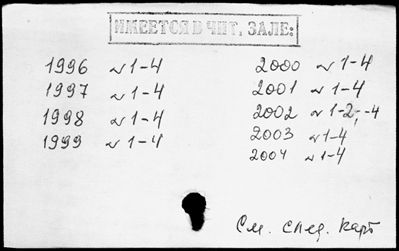 ИМЕЕТСЯ В ЧИТ. ЗАЛЕ:
1996 № 1-4
1997 № 1-4
1998 № 1-4
1999 № 1-4
2000 № 1-4
2001 № 1-4
2002 № 1-2; -4
2003 № 1-4
2004 № 1-4
См. след. карт